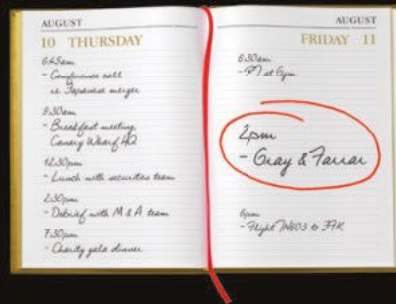 AUGUST
10 THURSDAY
6:45am
- Conference call
re. Japanese merger
9:30am
- Breakfast meeting
Canary Wharf HQ
12:30pm
- Lunch with securities team
2:30pm
- Debrief with M & A team
7:30pm
- Charity gala dinner
AUGUST
FRIDAY 11
6:30am
- PT at Gym
2pm
- Gray & Farrar
6pm
- Flight to JFK